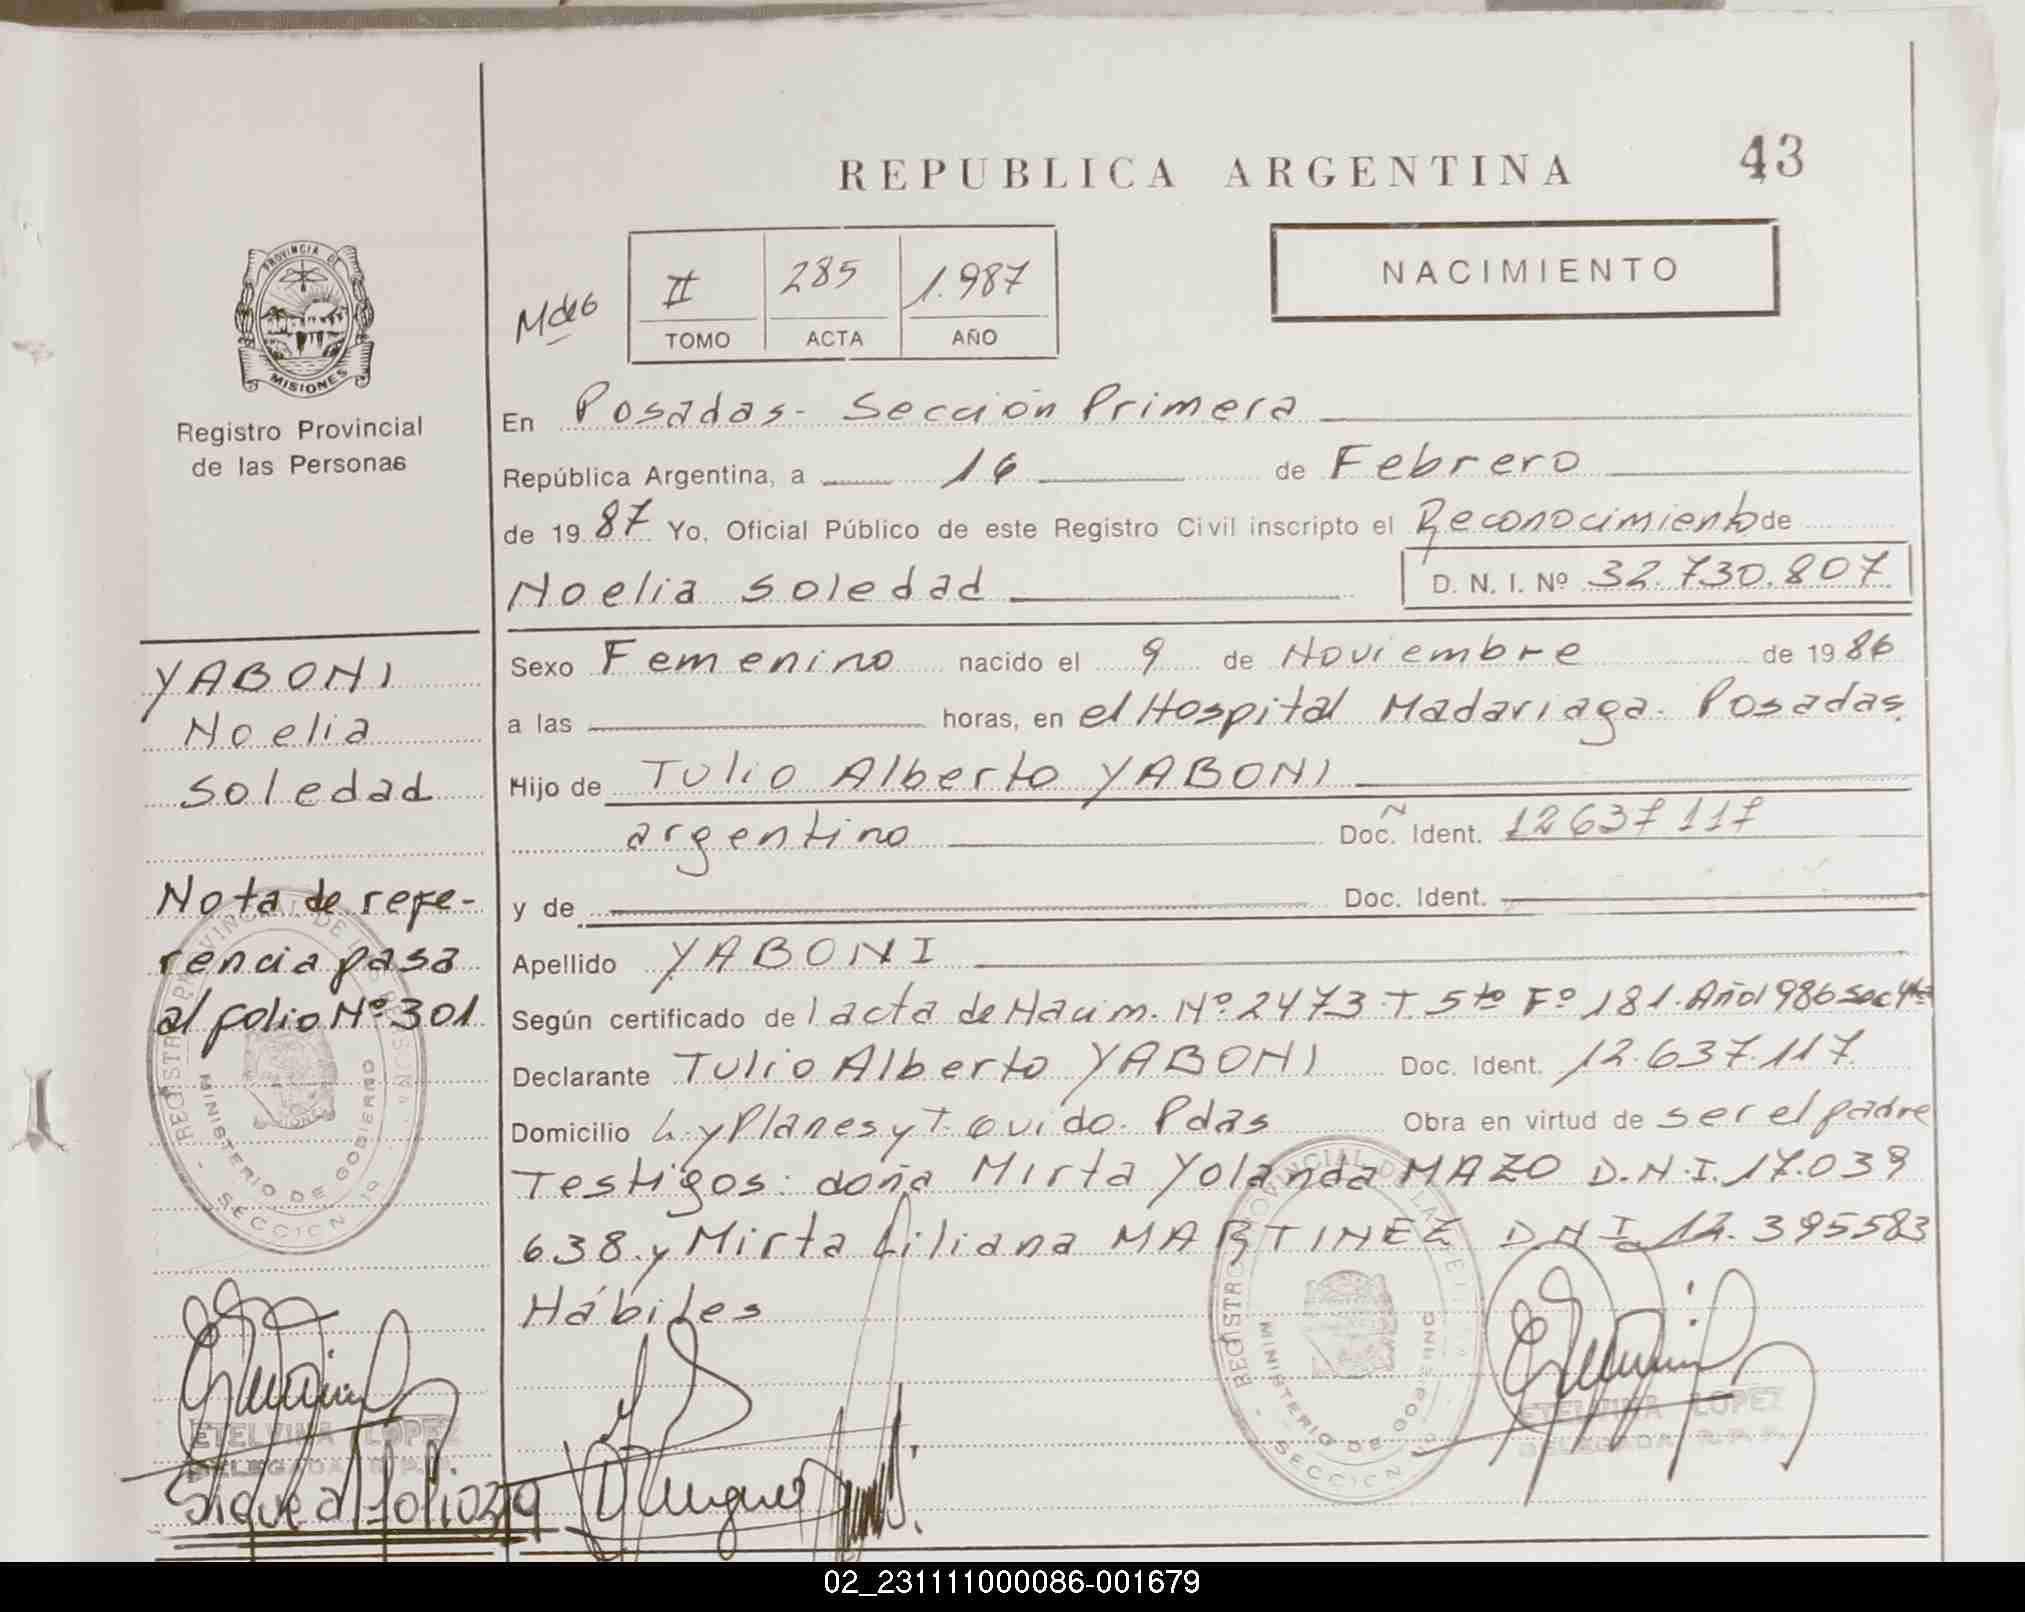 REPUBLICA ARGENTINA
43
NACIMIENTO
II 285 1.987
TOMO ACTA AÑO
PROVINCIA DE
MISIONES
Registro Provincial
de las Personas
En Posadas - Sección Primera
República Argentina, a 16 de Febrero
de 1987 Yo, Oficial Público de este Registro Civil inscripto el Reconocimiento de
Noelia Soledad D. N. I. Nº 32.730.807
Sexo Femenino nacido el 9 de Noviembre de 1986
a las horas, en el Hospital Madariaga. Posadas.
Hijo de Tulio Alberto YABONI
argentino Doc. Ident. 12 637 117
y de Doc. Ident.
Apellido YABONI
Según certificado del acta de Nacim. Nº 2473 T. 5to Fº 181. Año 1986 Sec 4ta
Declarante Tulio Alberto YABONI Doc. Ident. 12.637.117
Domicilio L. y Planes y T. Ouido. Pdas Obra en virtud de ser el padre
Testigos: doña Mirta Yolanda MAZO D.N.I. 17.039
638. y Mirta Liliana MARTINEZ D.N.I. 12.395583
Hábiles
YABONI
Noelia
Soledad
Nota de refe-
rencia pasa
al folio Nº 301
REGISTRO PROVINCIAL DE LAS PERSONAS
MINISTERIO DE GOBIERNO
SECCION 1a
ETELVINA LOPEZ
DELEGADA R.P.P.
Sigue al folio 379
REGISTRO PROVINCIAL DE LAS PE
MINISTERIO DE GOBIERNO
SECCION 1a
ETELVINA LOPEZ
DELEGADA R.P.P.
02_231111000086-001679